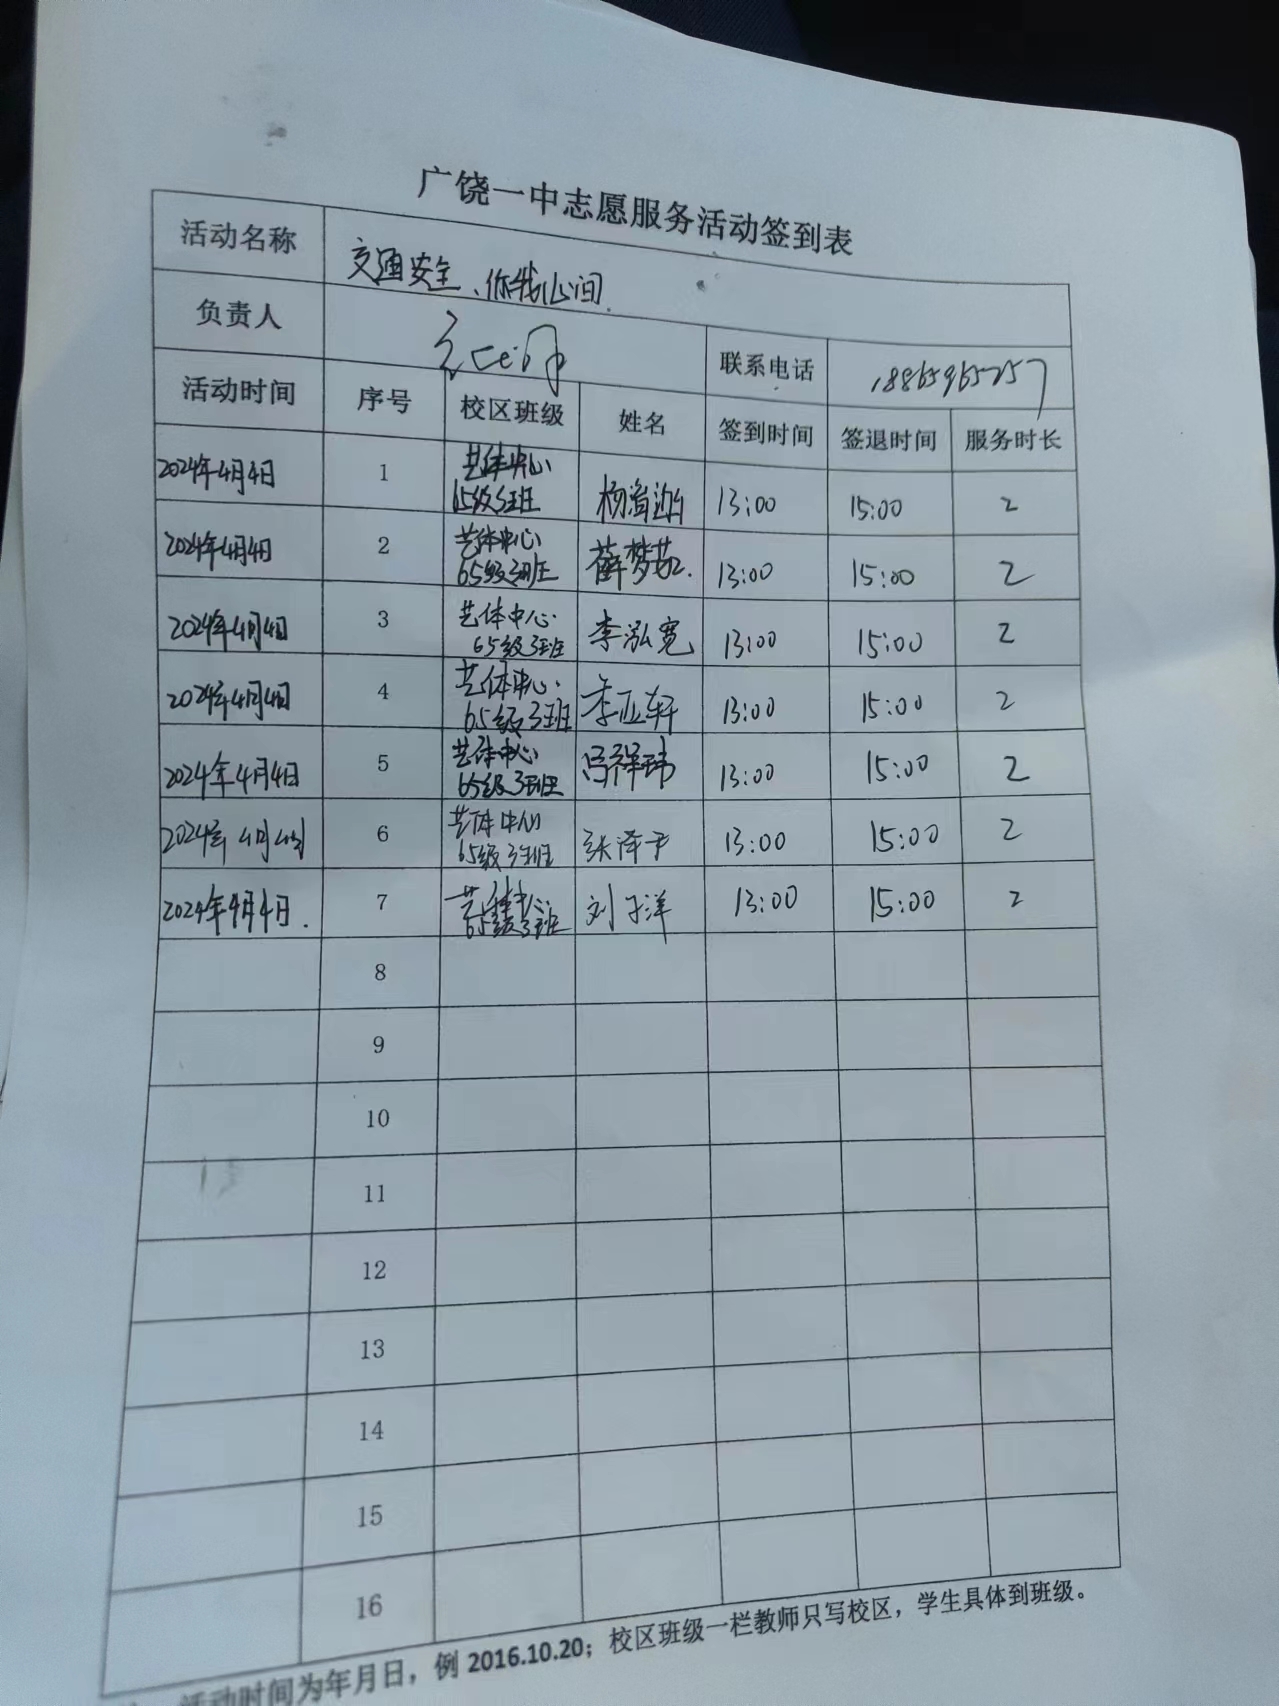 广饶一中志愿服务活动签到表
活动名称 交通安全、你我心间
负责人 联系电话
活动时间 序号 校区班级 姓名 签到时间 签退时间 服务时长
2024年4月4日 1 艺体中心 65级3班 杨 13:00 15:00 2
2024年4月4日 2 艺体中心 65级3班 薛梦 13:00 15:00 2
2024年4月4日 3 艺体中心 65级3班 李泓宽 13:00 15:00 2
2024年4月4日 4 艺体中心 65级3班 李亚轩 13:00 15:00 2
2024年4月4日 5 艺体中心 65级3班 冯祥玮 13:00 15:00 2
2024年4月4日 6 艺体中心 65级3班 张泽宇 13:00 15:00 2
2024年4月4日. 7 艺体中心 65级3班 刘子洋 13:00 15:00 2
8
9
10
11
12
13
14
15
16
活动时间为年月日，例 2016.10.20；校区班级一栏教师只写校区，学生具体到班级。